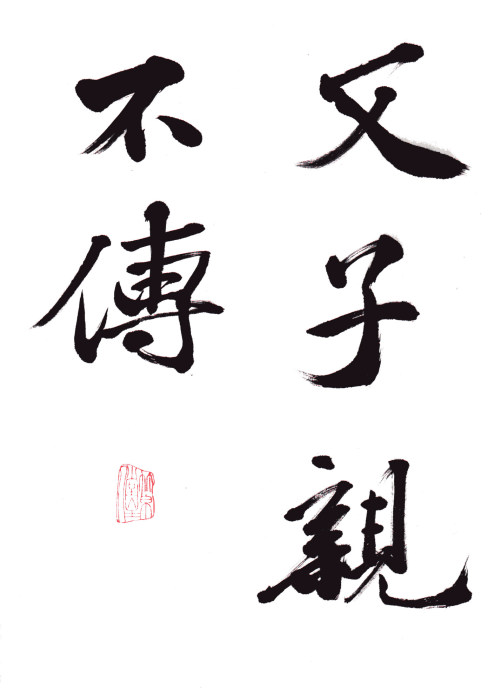 父子親
不傳